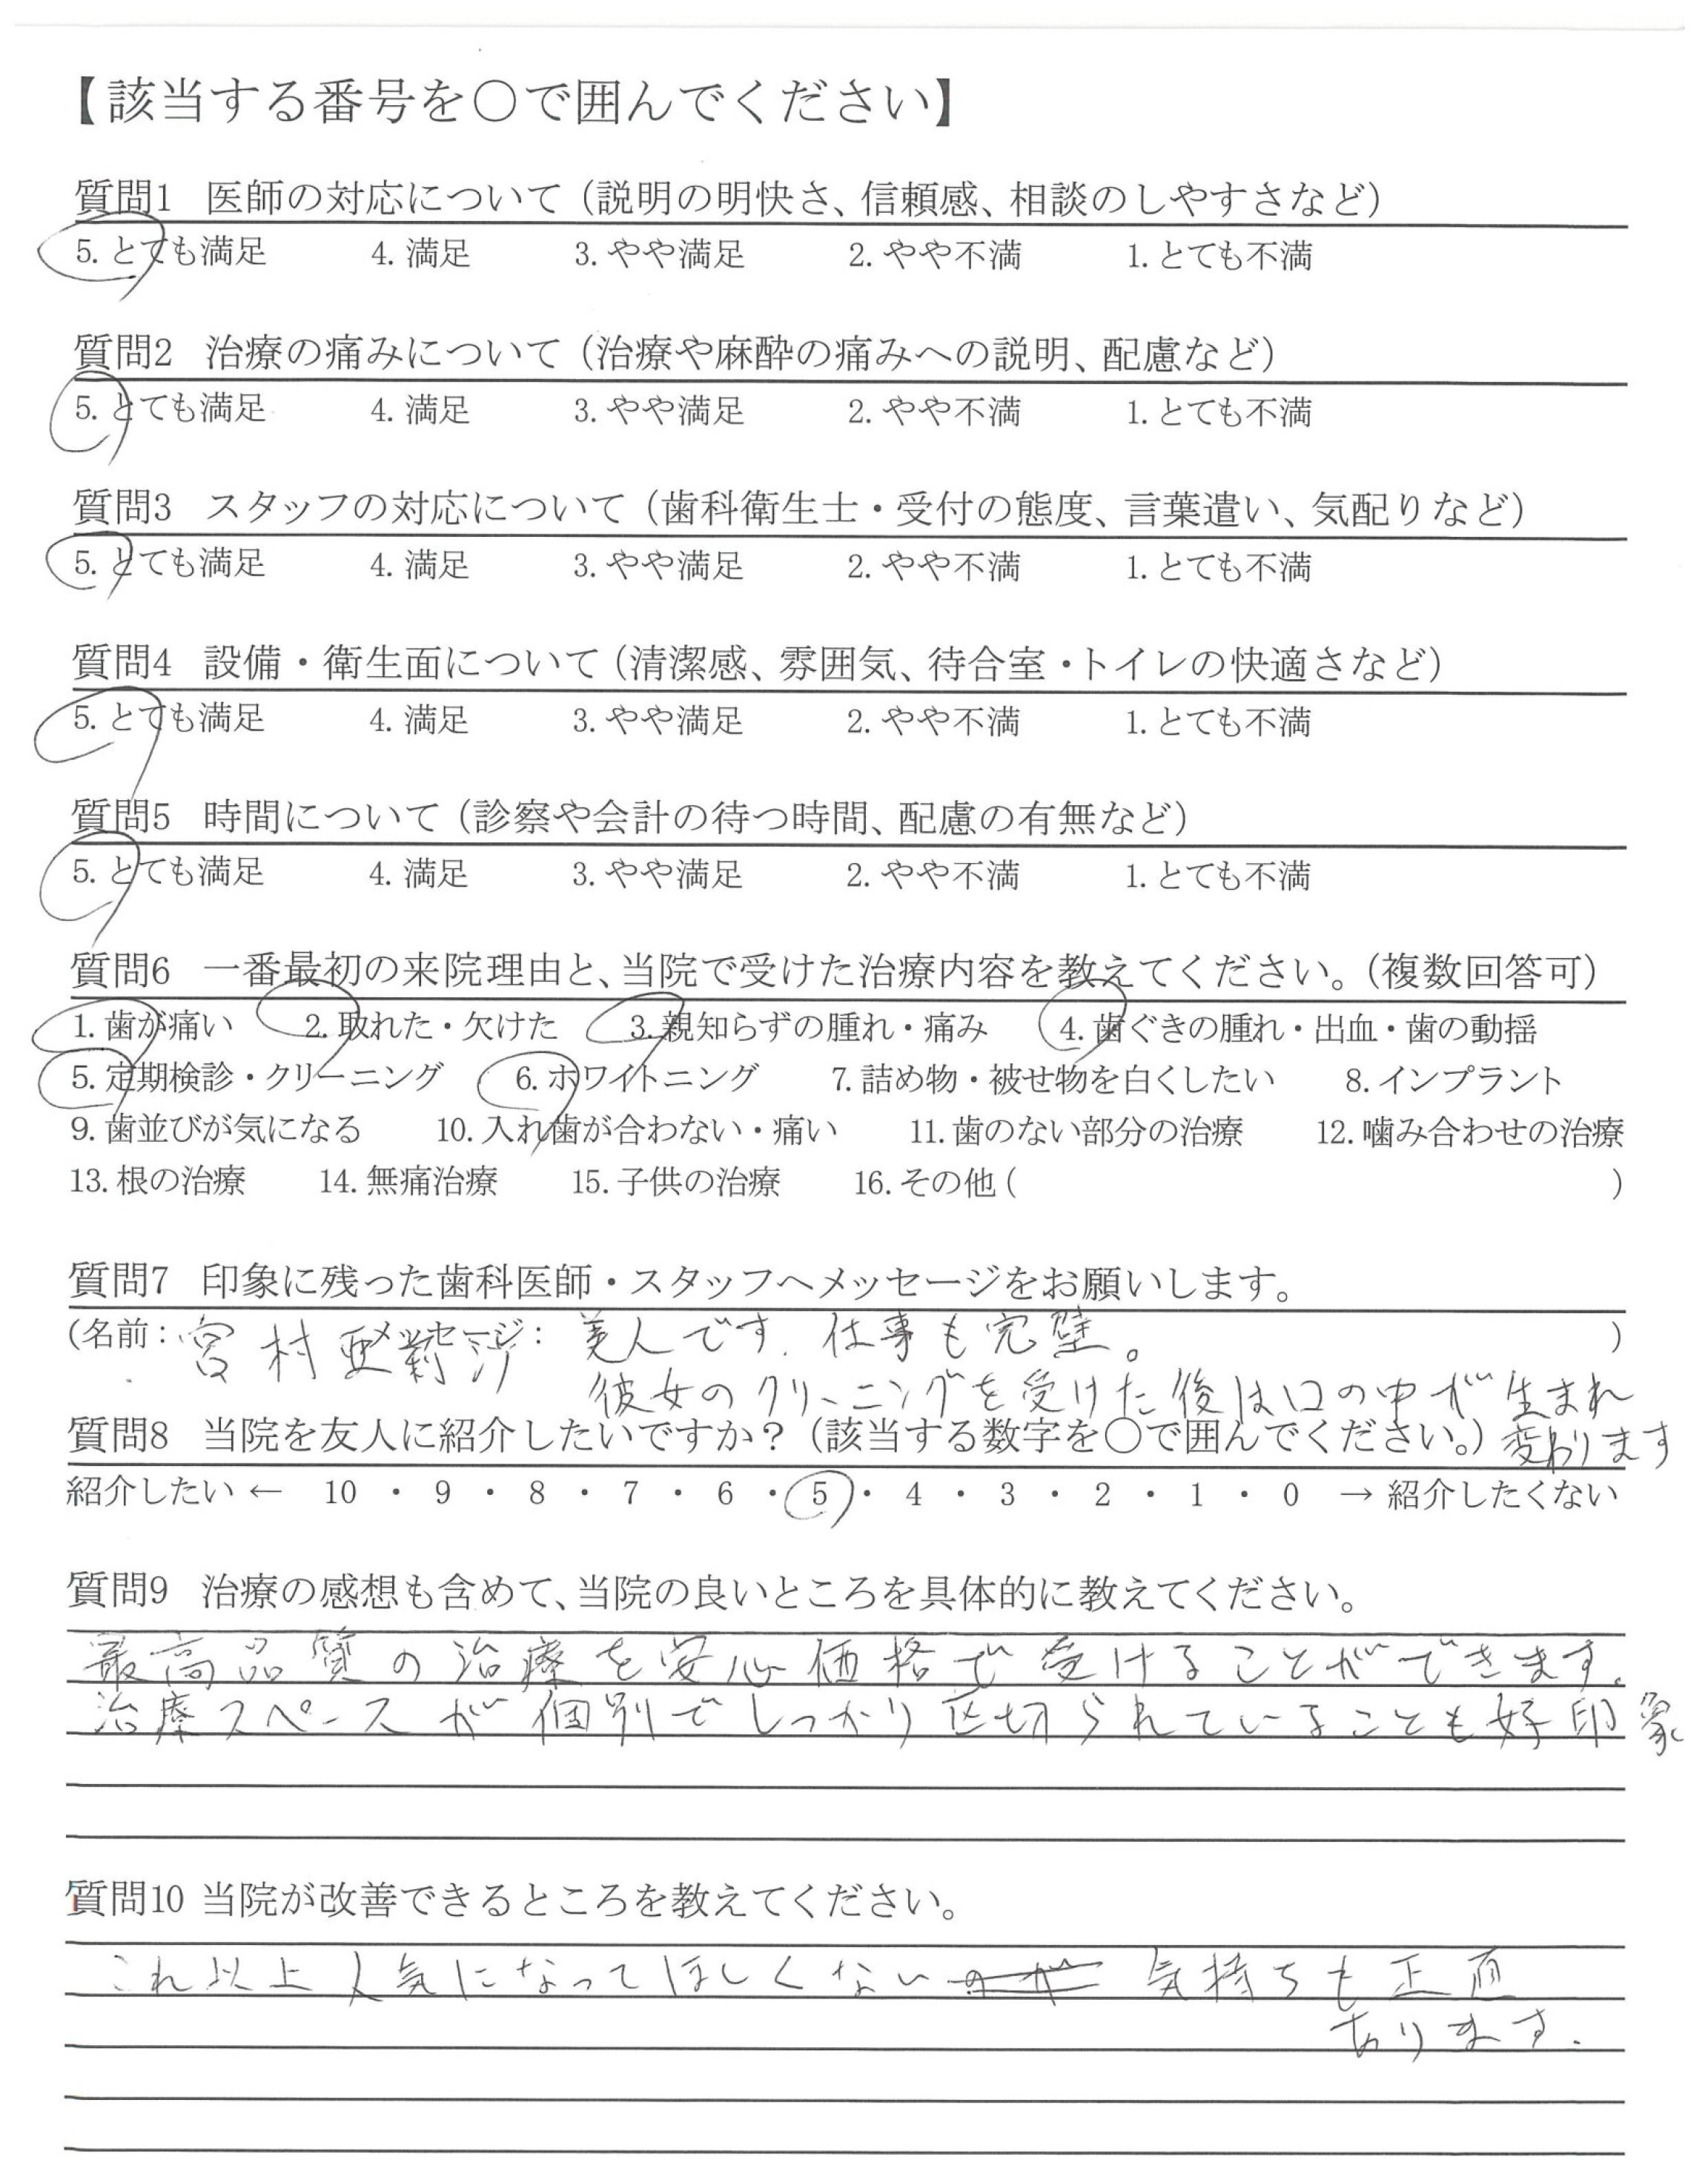 【該当する番号を○で囲んでください】
質問1 医師の対応について（説明の明快さ、信頼感、相談のしやすさなど）
5. とても満足 4. 満足 3. やや満足 2. やや不満 1. とても不満
質問2 治療の痛みについて（治療や麻酔の痛みへの説明、配慮など）
5. とても満足 4. 満足 3. やや満足 2. やや不満 1. とても不満
質問3 スタッフの対応について（歯科衛生士・受付の態度、言葉遣い、気配りなど）
5. とても満足 4. 満足 3. やや満足 2. やや不満 1. とても不満
質問4 設備・衛生面について（清潔感、雰囲気、待合室・トイレの快適さなど）
5. とても満足 4. 満足 3. やや満足 2. やや不満 1. とても不満
質問5 時間について（診察や会計の待つ時間、配慮の有無など）
5. とても満足 4. 満足 3. やや満足 2. やや不満 1. とても不満
質問6 一番最初の来院理由と、当院で受けた治療内容を教えてください。（複数回答可）
1. 歯が痛い 2. 取れた・欠けた 3. 親知らずの腫れ・痛み 4. 歯ぐきの腫れ・出血・歯の動揺
5. 定期検診・クリーニング 6. ホワイトニング 7. 詰め物・被せ物を白くしたい 8. インプラント
9. 歯並びが気になる 10. 入れ歯が合わない・痛い 11. 歯のない部分の治療 12. 噛み合わせの治療
13. 根の治療 14. 無痛治療 15. 子供の治療 16. その他（ ）
質問7 印象に残った歯科医師・スタッフへメッセージをお願いします。
（名前： 宮村亜莉沙 メッセージ： 美人です. 仕事も完璧。 ）
彼女のクリーニングを受けた後は口の中が生まれ
変わります
質問8 当院を友人に紹介したいですか？（該当する数字を○で囲んでください。）
紹介したい ← 10 ・ 9 ・ 8 ・ 7 ・ 6 ・ 5 ・ 4 ・ 3 ・ 2 ・ 1 ・ 0 → 紹介したくない
質問9 治療の感想も含めて、当院の良いところを具体的に教えてください。
最高品質の治療を安心価格で受けることができます。
治療スペースが個別でしっかり区切られていることも好印象
質問10 当院が改善できるところを教えてください。
これ以上人気になってほしくない 気持ちも正直
あります.